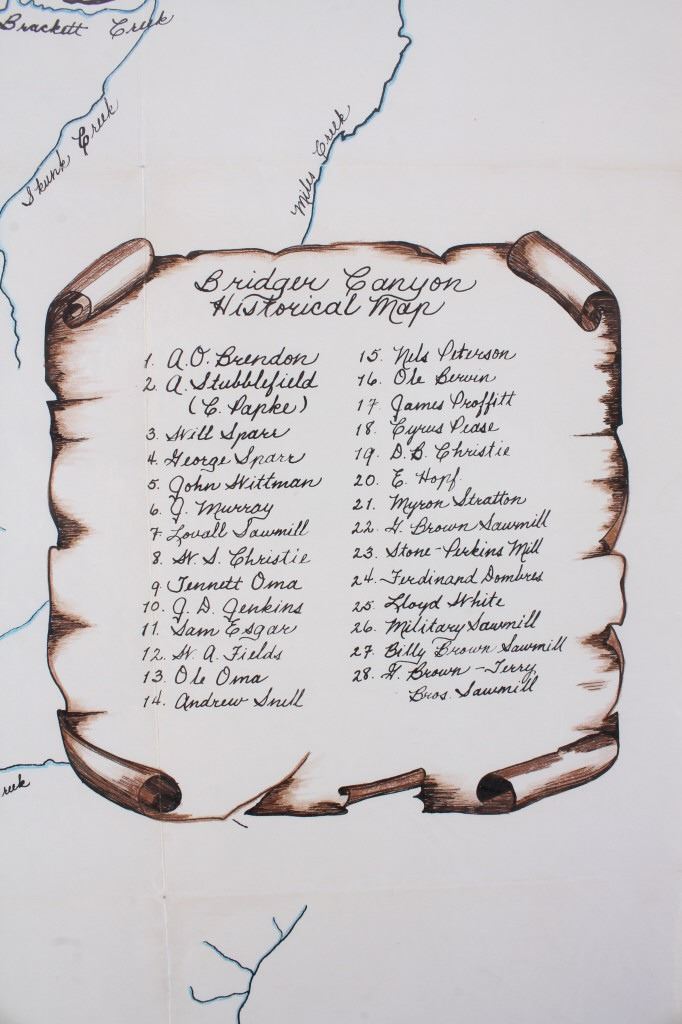 Brackett Creek
Skunk Creek
Miles Creek
Bridger Canyon
Historical Map
1. A.O. Brendon
2. A. Stubblefield
(C. Papke)
3. Will Sparr
4. George Sparr
5. John Wittman
6. J. Murray
7. Lovall Sawmill
8. W. S. Christie
9. Tennett Oma
10. J. D. Jenkins
11. Sam Esgar
12. W. A. Fields
13. Ole Oma
14. Andrew Snell
15. Nels Peterson
16. Ole Bervin
17. James Proffitt
18. Cyrus Pease
19. D.B. Christie
20. E. Hopf
21. Myron Stratton
22. G. Brown Sawmill
23. Stone-Perkins Mill
24. Ferdinand Dombres
25. Lloyd White
26. Military Sawmill
27. Billy Brown Sawmill
28. G. Brown - Terry
Bros. Sawmill
reek